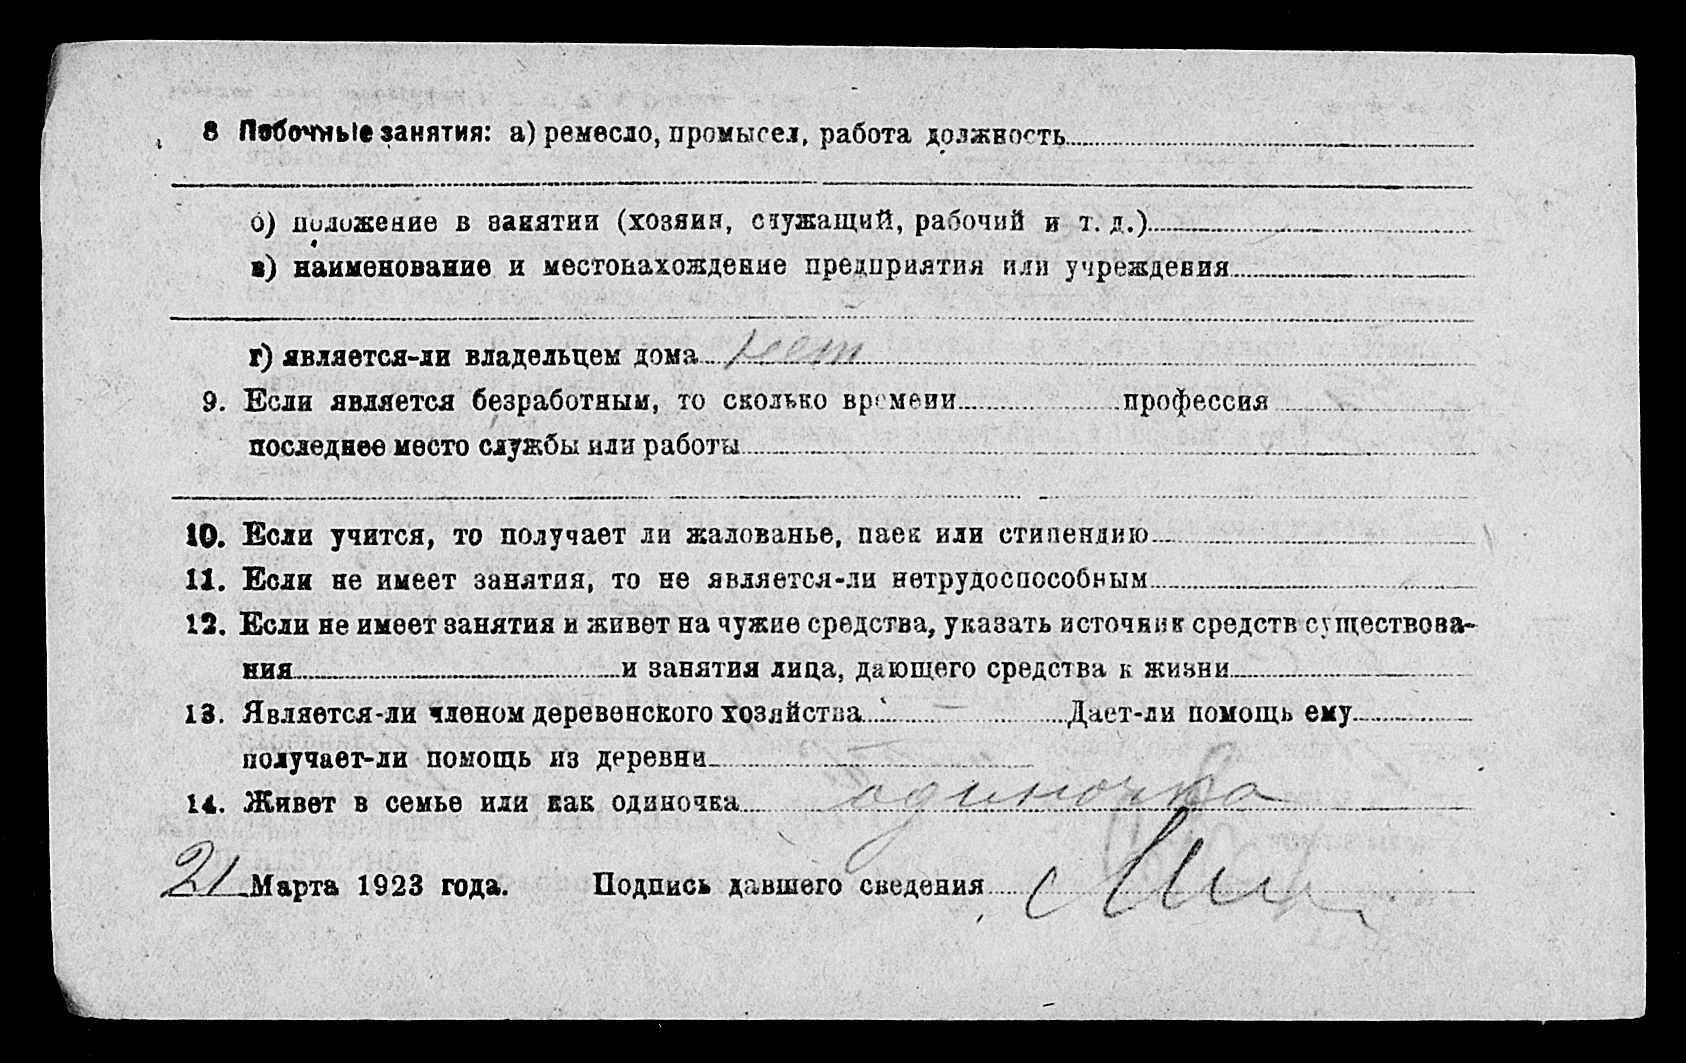 8 Побочные занятия: а) ремесло, промысел, работа должность
б) положение в занятии (хозяин, служащий, рабочий и т. д.)
в) наименование и местонахождение предприятия или учреждения
г) является-ли владельцем дома нет
9. Если является безработным, то сколько времени профессия
последнее место службы или работы
10. Если учится, то получает ли жалованье, паек или стипендию
11. Если не имеет занятия, то не является-ли нетрудоспособным
12. Если не имеет занятия и живет на чужие средства, указать источник средств существова-
ния и занятия лица, дающего средства к жизни
13. Является-ли членом деревенского хозяйства — Дает-ли помощь ему
получает-ли помощь из деревни
14. Живет в семье или как одиночка одиночка
21 Марта 1923 года. Подпись давшего сведения